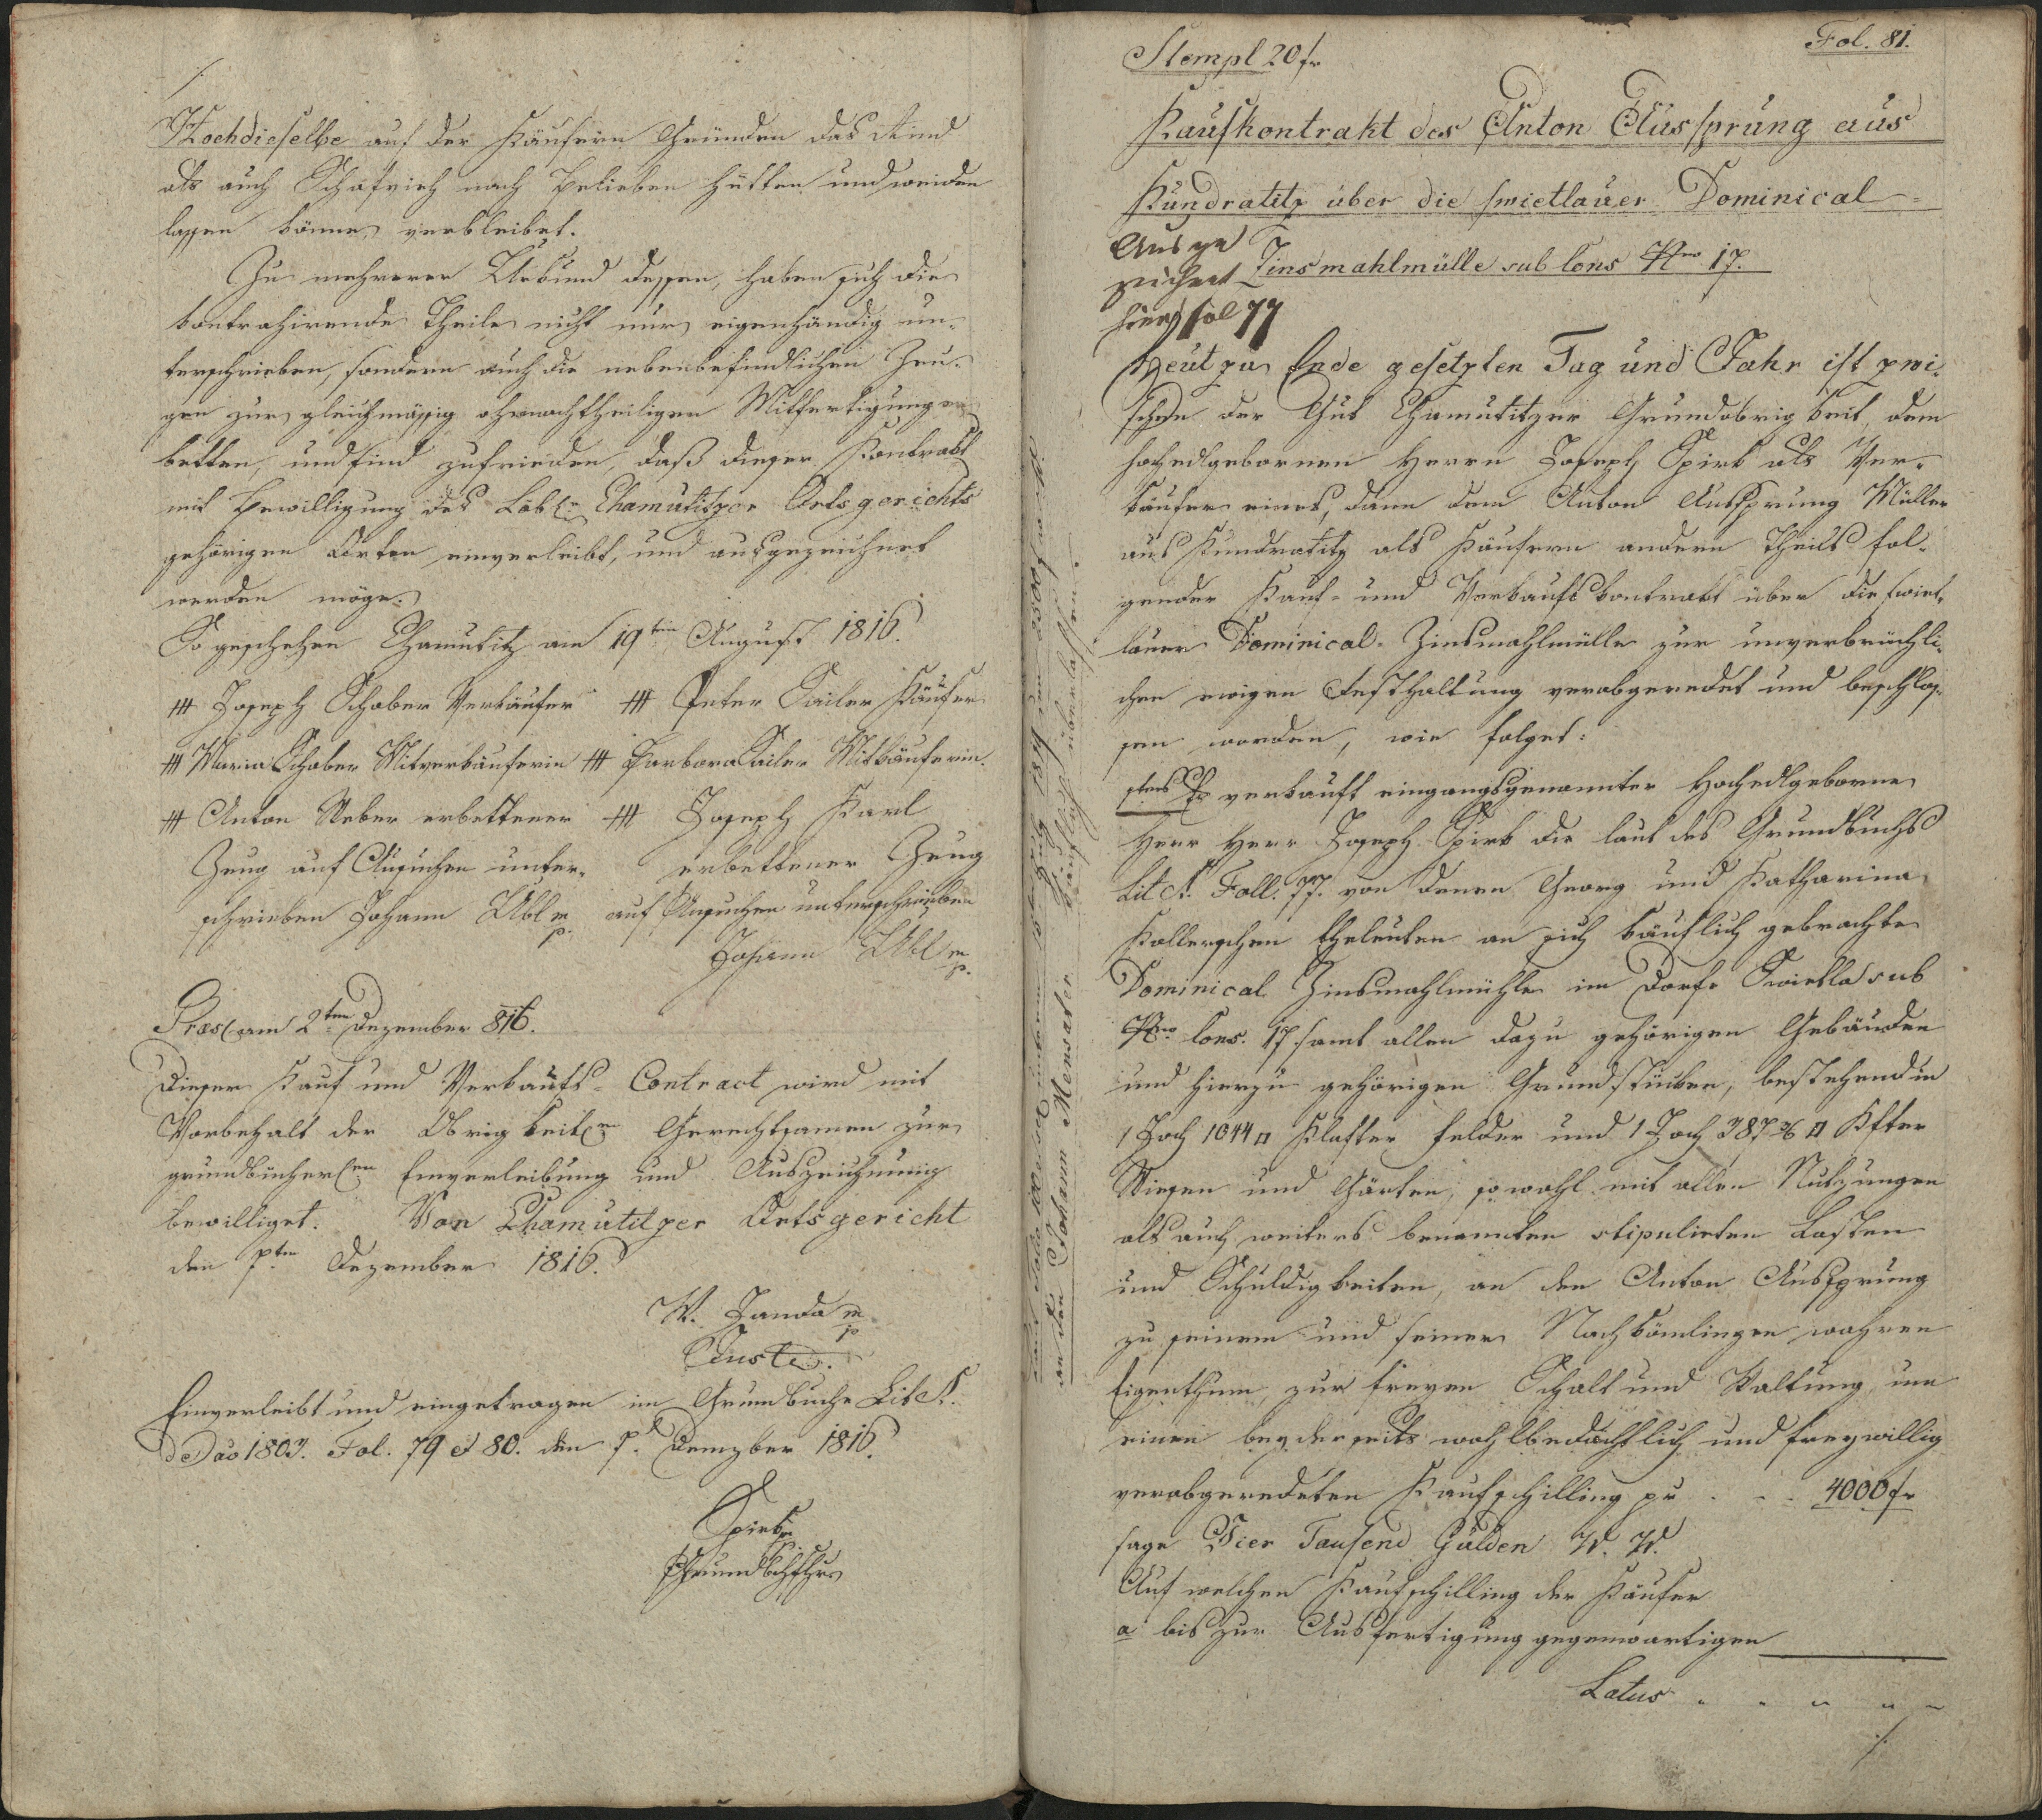 /.
Hochdieselbe auf der Käufern Gründen das Rind
als auch Schafvieh nach Belieben hütten und weiden
lassen könne, verbleibet.
Zu mehrerer Urkund dessen, haben sich die
kontrahirende Theile nicht nur eigenhändig un-
terschrieben, sondern auch die nebenbefindlichen Zeu-
gen zur gleichmässig ohnnachtheiligen Mitfertigung er-
betten, und sind zufrieden, daß dieser Kontrakt
mit Bewilligung des Löbl: Chamutitzer Ortsgerichts
gehörigen Orten einverleibt, und ausgezeichnet
werden möge.
So geschehen Chamutitz am 19ten August 1816.
+++ Joseph Schober Verkäufer +++ Peter Sailer Käufer
+++ Maria Schober Mitverkäuferin +++ Barbara Sailer Mitkäuferin.
+++ Anton Weber erbettener +++ Joseph Karl
Zeug auf Ansuchen unter- erbettener Zeug
schrieben Johann Uibl mp. auf Ansuchen unterschrieben
Johann Uibl mp.
Praes am 2ten Dezember 816.
Dieser Kauf und Verkaufs-Contract wird mit
Vorbehalt der Obrigkeitlen Gerechtsamen zur
grundbücherlen Einverleibung und Auszeichnung
bewilliget. Von Chamutitzer Ortsgericht
den 7ten Dezember 1816.
W. Janda mp
Juste.
Einverleibt und eingetragen im Grundbuche Lit A.
de Dao 1803. Fol. 79 et 80. den 7. Dezmber 1816.
Spirk
Grundbchfhr
von den Johann Mensater käuflich überlassen
Fol. 81.
Stempl 20 fr
Kaufkontrakt des Anton Aussprung aus
Kundratitz über die swietlauer Dominical-
Zinsmahlmülle sub Cons Nro 17.
Ausge
zeichnet
hier fol 77
Heut zu Ende gesetzten Tag und Jahr ist zwi-
schen der Gut Chamutitzer Grundobrigkeit, dem
hochedlgebornen Herrn Joseph Spirk als Ver-
käufer eines, dann dem Anton Aussprung Müller
aus Kundratitz als Käufern andern Theils fol-
gender Kauf- und Verkaufskontrakt über die swiet-
lauer Dominical-Zinsmahlmülle zur unverbrüchli-
chen ewigen Festhaltung verabgeredet und beschlos-
sen worden, wie folget:
1tens Es verkauft eingangsgenannter Hochedlgeborne
Herr Herr Joseph Spirk die laut des Grundbuchs
Lit A. Foll. 77. von denen Georg und Katharina
Kollerschen Eheleuten an sich käuflich gebrachte
Dominical Zinsmahlmühle im Dorfe Swietla sub
Nro Cons. 17. samt allen dazu gehörigen Gebäuden
und hierzu gehörigen Grundstücken, bestehend in
1 Joch 1044 □ Klafter Felder und 1 Joch 387 2/6 □ Kfter
Wiesen und Gärten, sowohl mit allen Nutzungen
als auch weiters benannten stipulirten Lasten
und Schuldigkeiten, an den Anton Aussprung
zu seinem und seiner Nachkömlingen wahren
Eigenthum, zur freyen Schalt und Waltung um
einen beyderseits wohlbedächtlich und freywillig
verabgeredeten Kaufschilling pr . . . 4000 fr
sage Vier Tausend Gulden W. W.
Auf welchen Kaufschilling der Käufer
a bis zur Ausfertigung gegenwärtigen
Latus " " " " "
/.